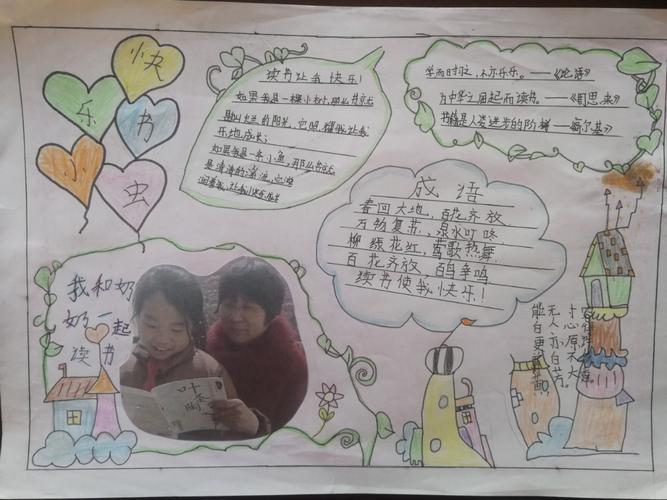 快
乐 书
小 虫
读书让我快乐!
如果我是一棵小树,那么书就
乐地成长;
如果我是一条小鱼,那么书就
是清清的溪流,它滋
润着我,让我快乐
学而时习之,不亦乐乎。——《论语》
为中华之崛起而读书。——《周恩来》
书籍是人类进步的阶梯——高尔基》
成语
春回大地,百花齐放,
万物复苏,泉水叮咚.
柳绿花红,莺歌燕舞.
百花齐放,百鸟争鸣.
读书使我快乐!
我和奶
奶一起
读书
叶圣陶
能白更
无人亦自芳。
寸心原不大,